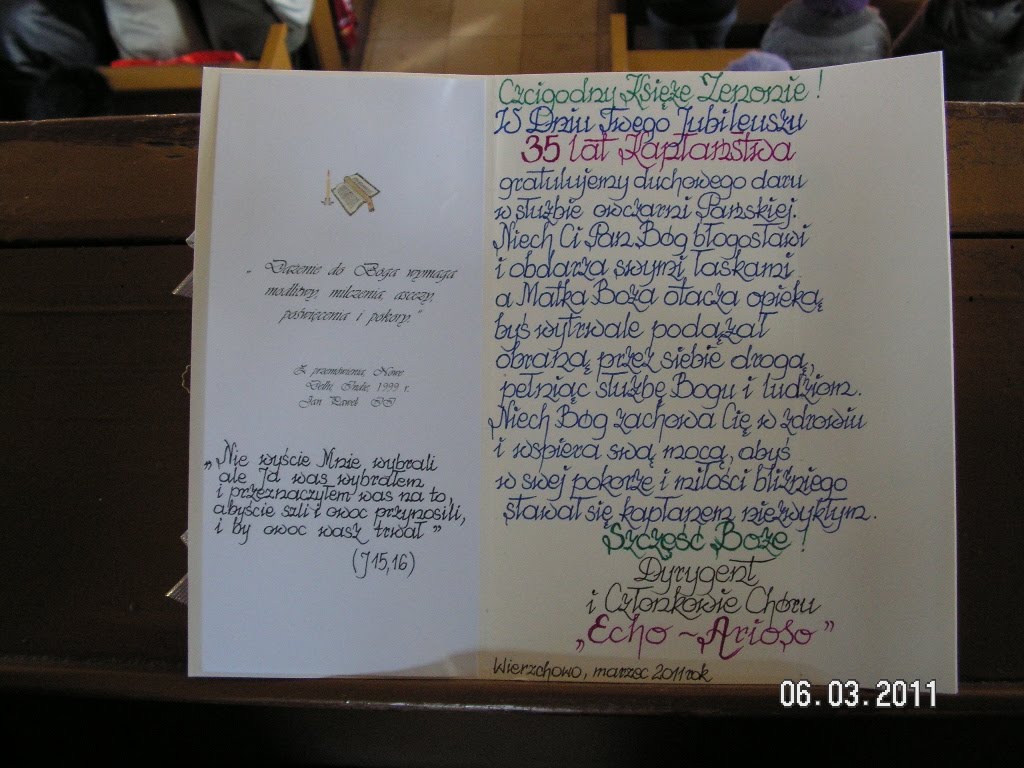 „Dążenie do Boga wymaga
modlitwy, milczenia, ascezy,
poświęcenia i pokory."
Z przemówienia, Nowe
Delhi, Indie, 1999 r.
Jan Paweł II
„Nie wyście Mnie wybrali
ale Ja was wybrałem
i przeznaczyłem was na to,
abyście szli i owoc przynosili,
i by owoc wasz trwał"
(J 15,16)
Czcigodny Księże Zenonie!
W Dniu Twego Jubileuszu
35 lat Kapłaństwa
gratulujemy duchowego daru
w służbie owczarni Pańskiej.
Niech Ci Pan Bóg błogosławi
i obdarza swymi łaskami
a Matka Boża otacza opieką
byś wytrwale podążał
obraną przez siebie drogą,
pełniąc służbę Bogu i ludziom.
Niech Bóg zachowa Cię w zdrowiu
i wspiera swą mocą, abyś
w swej pokorze i miłości bliźniego
stawał się kapłanem niezwykłym.
Szczęść Boże!
Dyrygent
i Członkowie Chóru
„Echo ~ Arioso"
Wierzchowo, marzec 2011 rok
06.03.2011